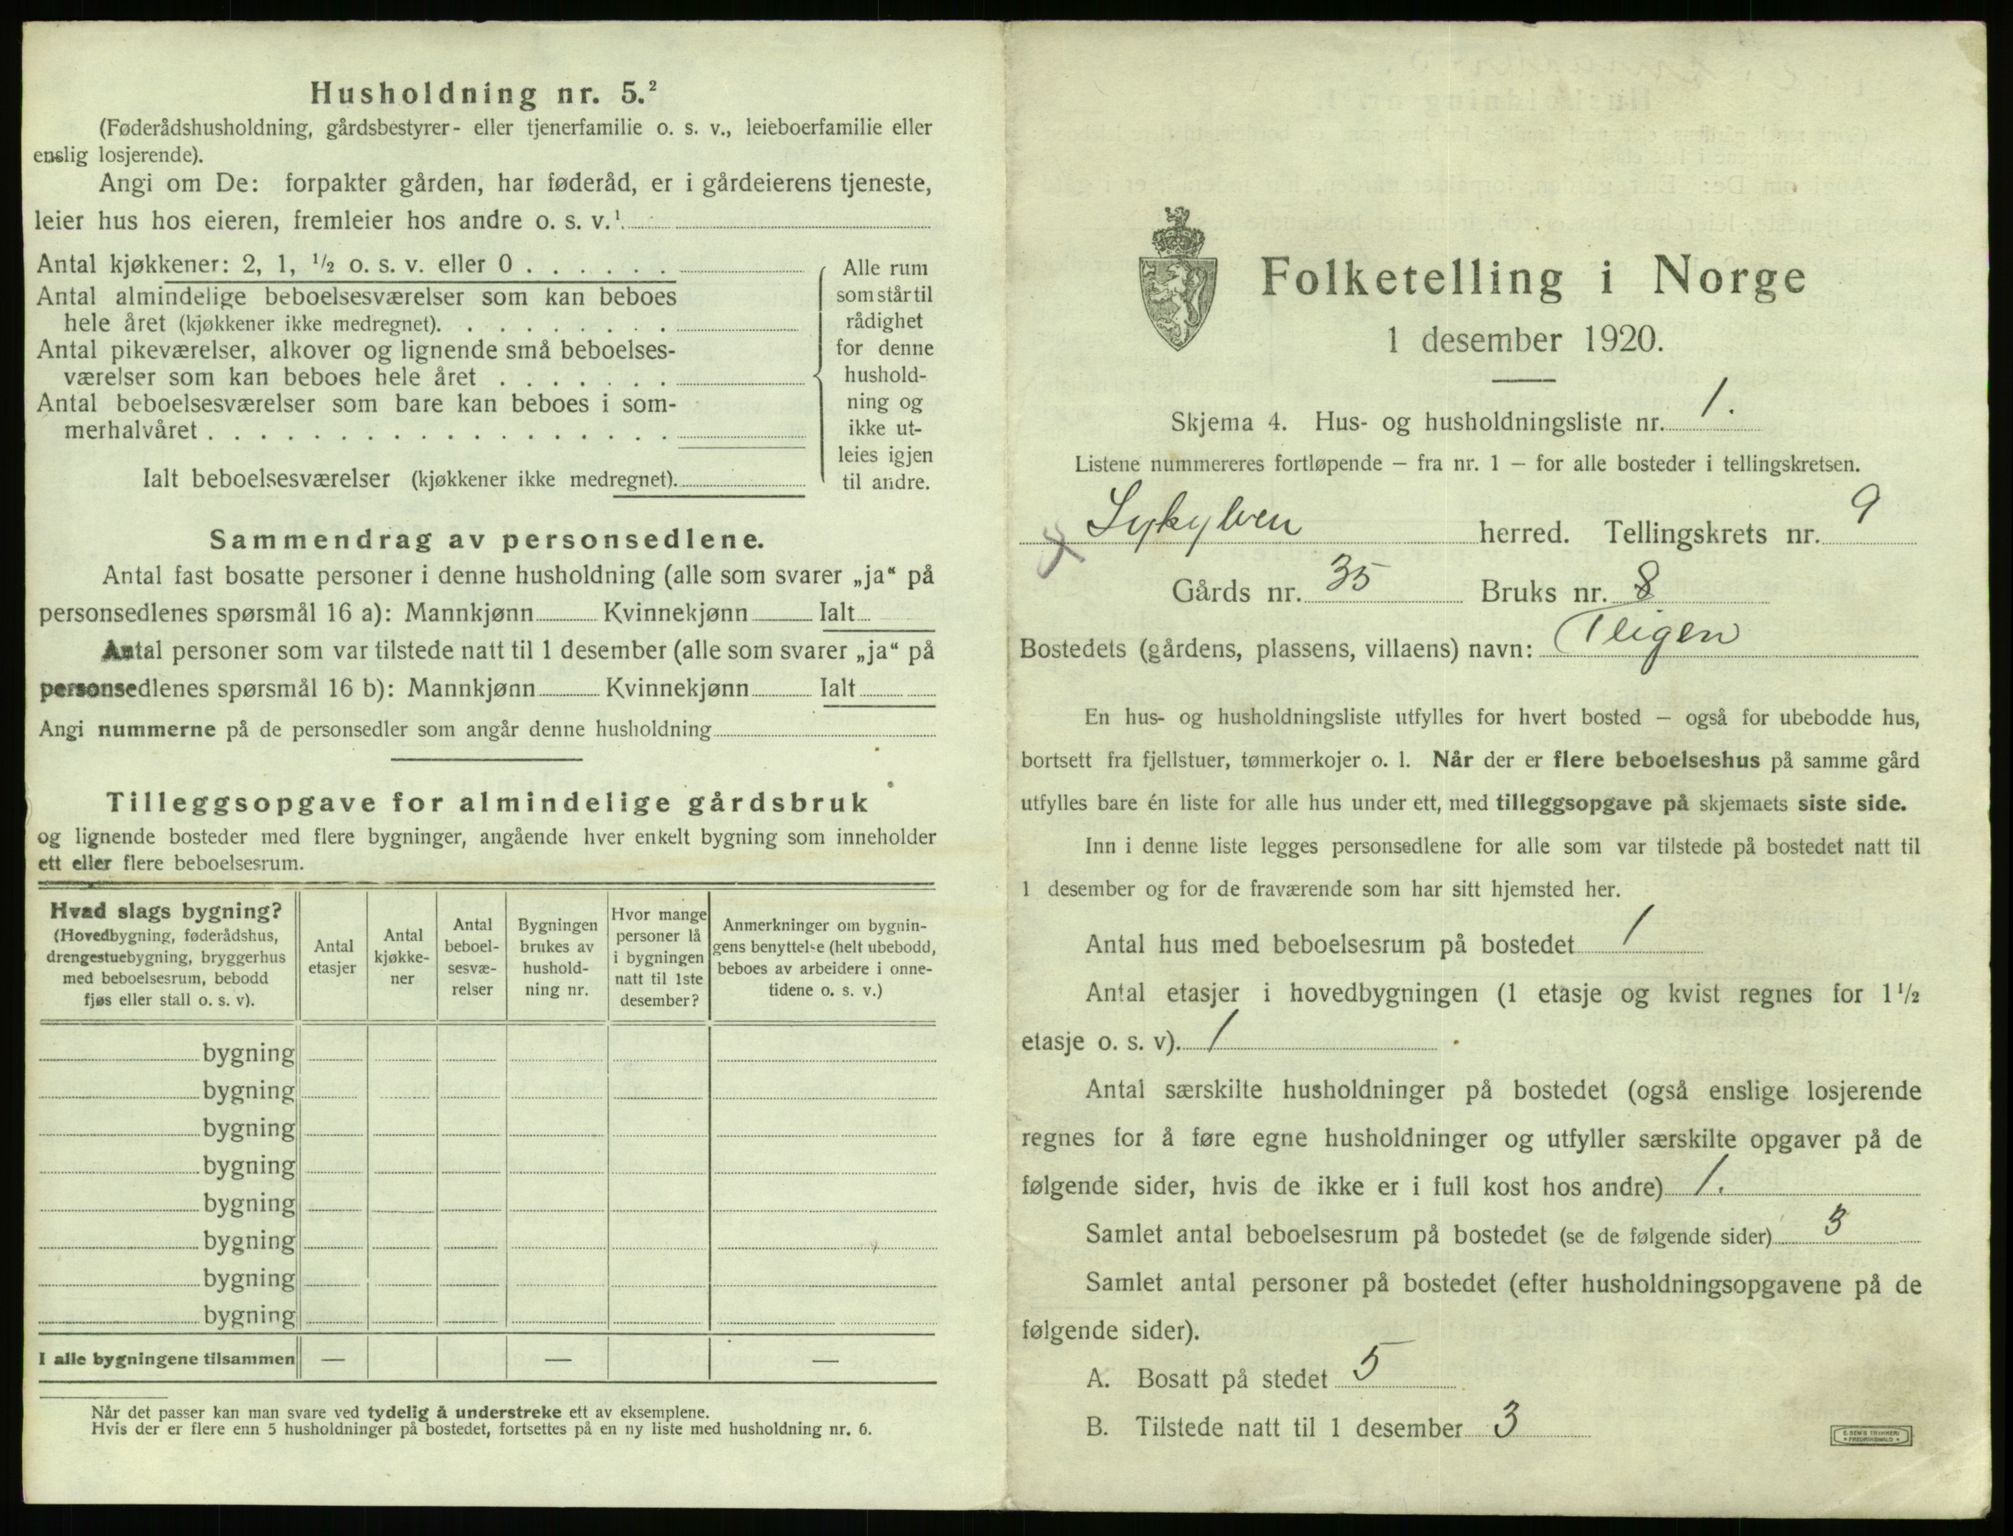 Husholdning nr. 5.²
(Føderådshusholdning, gårdsbestyrer- eller tjenerfamilie o. s. v., leieboerfamilie eller
enslig losjerende).
Angi om De: forpakter gården, har føderåd, er i gårdeierens tjeneste,
leier hus hos eieren, fremleier hos andre o. s. v.¹
Antal kjøkkener: 2, 1, ½ o. s. v. eller 0 . . . . . .
Antal almindelige beboelsesværelser som kan beboes
hele året (kjøkkener ikke medregnet). . . . . . . . .
Antal pikeværelser, alkover og lignende små beboelses-
værelser som kan beboes hele året . . . . . . .
Antal beboelsesværelser som bare kan beboes i som-
merhalvåret . . . . . . . . . . . . . . . . . .
Ialt beboelsesværelser (kjøkkener ikke medregnet).
Alle rum
som står til
rådighet
for denne
hushold-
ning og
ikke ut-
leies igjen
til andre.
Sammendrag av personsedlene.
Antal fast bosatte personer i denne husholdning (alle som svarer „ja“ på
personsedlenes spørsmål 16 a): Mannkjønn Kvinnekjønn Ialt
Antal personer som var tilstede natt til 1 desember (alle som svarer „ja“ på
personsedlenes spørsmål 16 b): Mannkjønn Kvinnekjønn Ialt
Angi nummerne på de personsedler som angår denne husholdning
Tilleggsopgave for almindelige gårdsbruk
og lignende bosteder med flere bygninger, angående hver enkelt bygning som inneholder
ett eller flere beboelsesrum.
Hvad slags bygning?
(Hovedbygning, føderådshus,
drengestuebygning, bryggerhus
med beboelsesrum, bebodd
fjøs eller stall o. s. v).
Antal
etasjer
Antal
kjøkke-
ner
Antal
beboel-
sesvæ-
relser
Bygningen
brukes av
hushold-
ning nr.
Hvor mange
personer lå
i bygningen
natt til 1ste
desember?
Anmerkninger om bygnin-
gens benyttelse (helt ubebodd,
beboes av arbeidere i onne-
tidene o. s. v.)
bygning
bygning
bygning
bygning
bygning
bygning
bygning
bygning
I alle bygningene tilsammen — — —
Når det passer kan man svare ved tydelig å understreke ett av eksemplene.
Hvis der er flere enn 5 husholdninger på bostedet, fortsettes på en ny liste med husholdning nr. 6.
Folketelling i Norge
1 desember 1920.
Skjema 4. Hus- og husholdningsliste nr. 1.
Listene nummereres fortløpende – fra nr. 1 – for alle bosteder i tellingskretsen.
Sykylven herred. Tellingskrets nr. 9
Gårds nr. 35 Bruks nr. 8
Bostedets (gårdens, plassens, villaens) navn: Teigen
En hus- og husholdningsliste utfylles for hvert bosted – også for ubebodde hus,
bortsett fra fjellstuer, tømmerkojer o. l. Når der er flere beboelseshus på samme gård
utfylles bare én liste for alle hus under ett, med tilleggsopgave på skjemaets siste side.
Inn i denne liste legges personsedlene for alle som var tilstede på bostedet natt til
1 desember og for de fraværende som har sitt hjemsted her.
Antal hus med beboelsesrum på bostedet 1
Antal etasjer i hovedbygningen (1 etasje og kvist regnes for 1½
etasje o. s. v). 1
Antal særskilte husholdninger på bostedet (også enslige losjerende
regnes for å føre egne husholdninger og utfyller særskilte opgaver på de
følgende sider, hvis de ikke er i full kost hos andre) 1.
Samlet antal beboelsesrum på bostedet (se de følgende sider) 3
Samlet antal personer på bostedet (efter husholdningsopgavene på de
følgende sider).
A. Bosatt på stedet 5
B. Tilstede natt til 1 desember 3